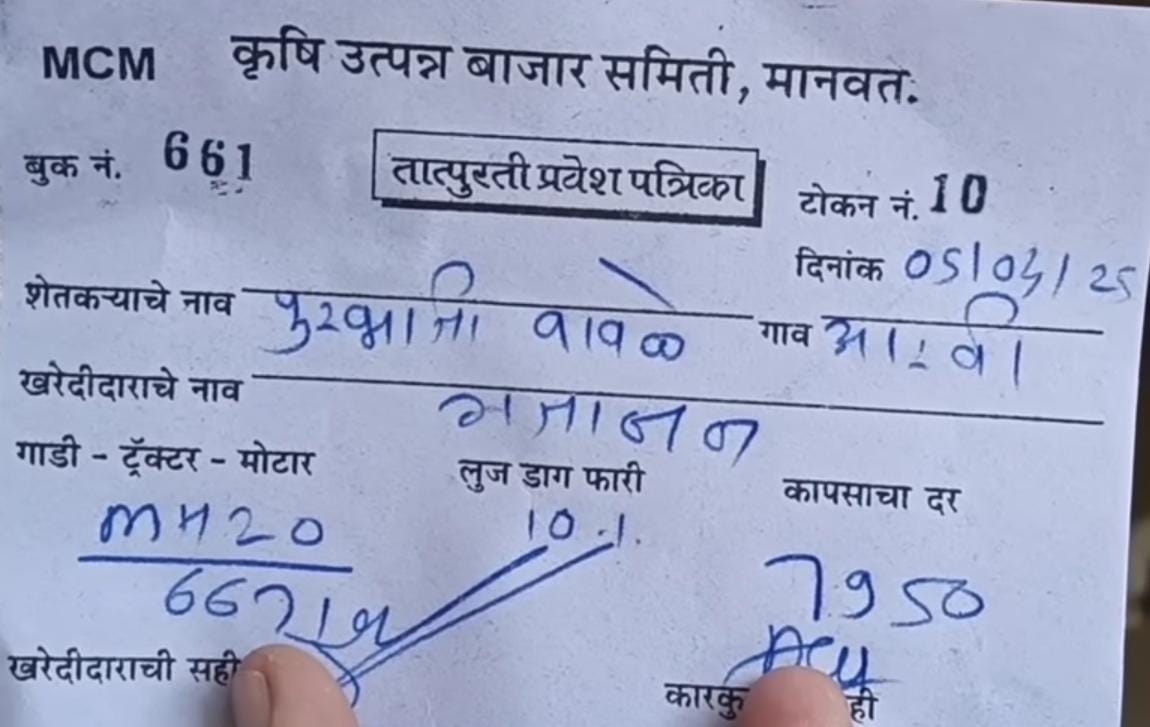 MCM कृषि उत्पन्न बाजार समिती, मानवत.
बुक नं. 661 तात्पुरती प्रवेश पत्रिका टोकन नं. 10
दिनांक 05/04/25
शेतकऱ्याचे नाव गाव आर्वी
खरेदीदाराचे नाव गजानन
गाडी - ट्रॅक्टर - मोटार लुज डाग फारी कापसाचा दर
MH20 10.1. 7950
खरेदीदाराची सही